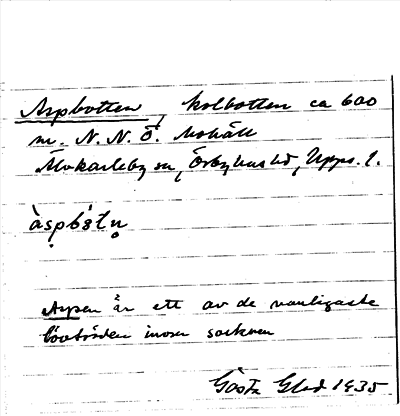 Aspbotten, kolbotten ca 600
m. N.N.Ö.
Älvkarleby sn, Örbyhus hd, Upps. l.
àspbótn̥
Aspen är ett av de vanligaste
lövträden inom socknen
Gösta Glad 1935